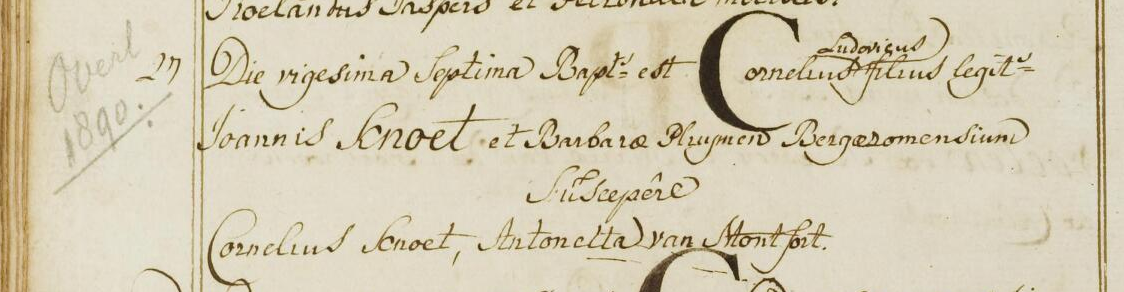 Roelandus Jaspers et Petronella
Overl 1890.
27 Die vigesima Septima Bapt.s est Cornelius Ludovicus filius legit.s
Joannis Knoet et Barbaræ Pluymen Bergæzomensium
Suscepêre
Cornelius Knoet, Antonetta van Montfort.